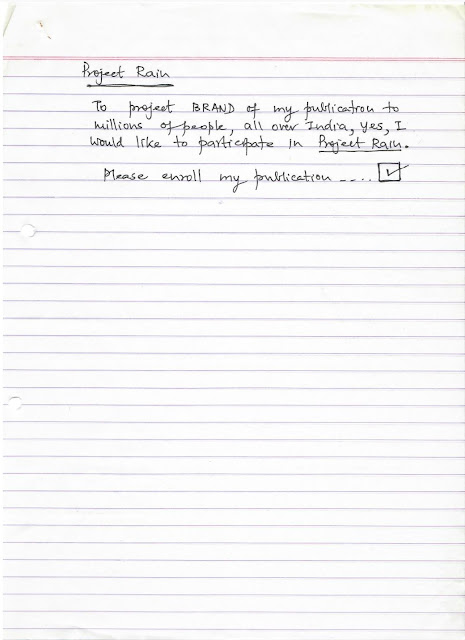 Project Rain
To project BRAND of my publication to
millions of people, all over India, yes, I
would like to participate in Project Rain.
Please enroll my publication ----.. ☑